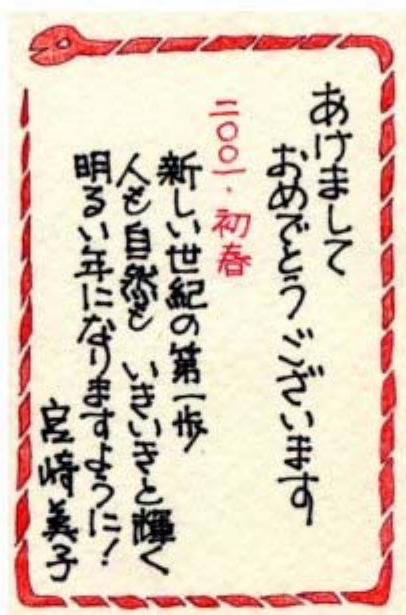 あけまして
おめでとうございます
二〇〇一・初春
新しい世紀の第一歩
人も自然も いきいきと輝く
明るい年になりますように!
宮崎美子